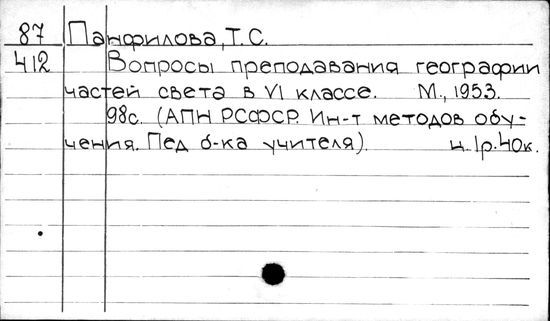 87 Панфилова, Т. С.
412 Вопросы преподавания географии
частей света в VI классе. М., 1953.
98с. (АПН РСФСР. Ин-т методов обу-
чения. Пед б-ка учителя). ц. 1р. 40к.